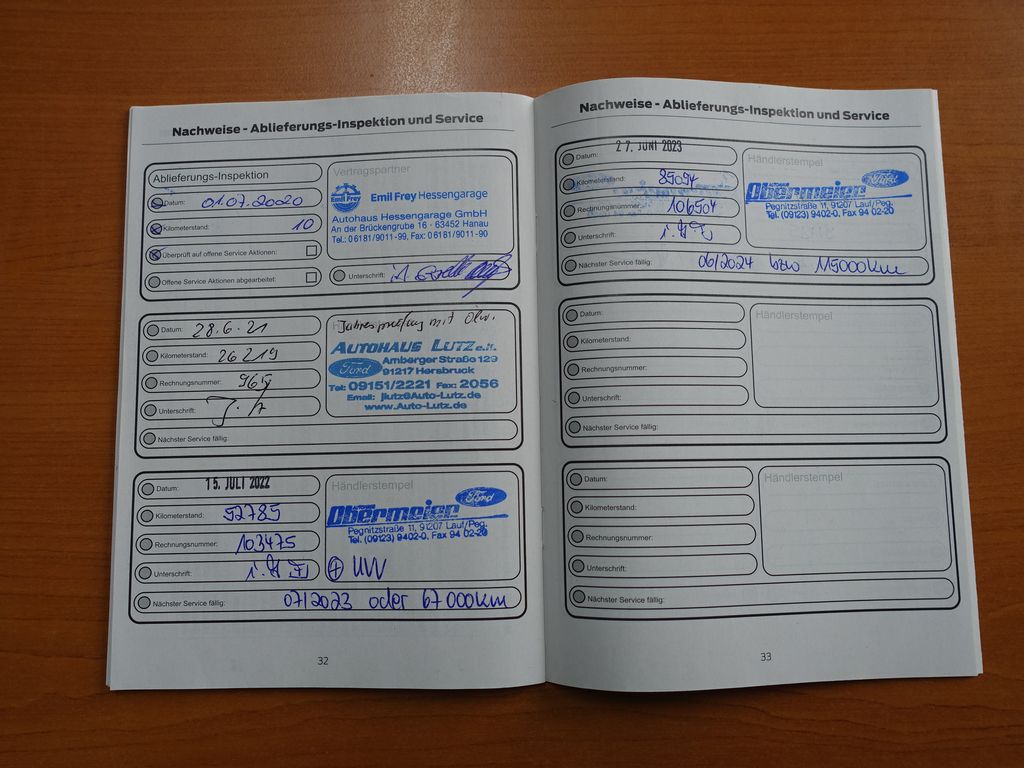 Nachweise - Ablieferungs-Inspektion und Service
Ablieferungs-Inspektion
Datum: 01.07.2020
Kilometerstand: 10
Überprüft auf offene Service Aktionen:
Offene Service Aktionen abgearbeitet:
Vertragspartner
Emil Frey
Emil Frey Hessengarage
Autohaus Hessengarage GmbH
An der Brückengrube 16 · 63452 Hanau
Tel.: 06181/9011-99, Fax: 06181/9011-90
Unterschrift:
Datum: 28.6.21
Kilometerstand: 26219
Rechnungsnummer:
Unterschrift:
Nächster Service fällig:
Jahresprüfung mit Ölw.
AUTOHAUS LUTZ e.K.
Ford
Amberger Straße 129
91217 Hersbruck
Tel: 09151/2221 Fax: 2056
Email: jlutz@Auto-Lutz.de
www.Auto-Lutz.de
Datum: 15. JULI 2022
Kilometerstand: 52785
Rechnungsnummer: 103475
Unterschrift:
Nächster Service fällig: 07/2023 oder 67000km
Händlerstempel
AUTOHAUS
Obermeier Ford
Pegnitzstraße 11, 91207 Lauf/Peg.
Tel. (09123) 9402-0, Fax 94 02-20
+ UW
32
Nachweise - Ablieferungs-Inspektion und Service
Datum: 27. JUNI 2023
Kilometerstand: 85094
Rechnungsnummer: 106504
Unterschrift:
Nächster Service fällig: 06/2024 bzw 115000km
Händlerstempel
AUTOHAUS
Obermeier Ford
Pegnitzstraße 11, 91207 Lauf/Peg.
Tel. (09123) 9402-0, Fax 94 02-20
Datum:
Kilometerstand:
Rechnungsnummer:
Unterschrift:
Nächster Service fällig:
Händlerstempel
Datum:
Kilometerstand:
Rechnungsnummer:
Unterschrift:
Nächster Service fällig:
Händlerstempel
33